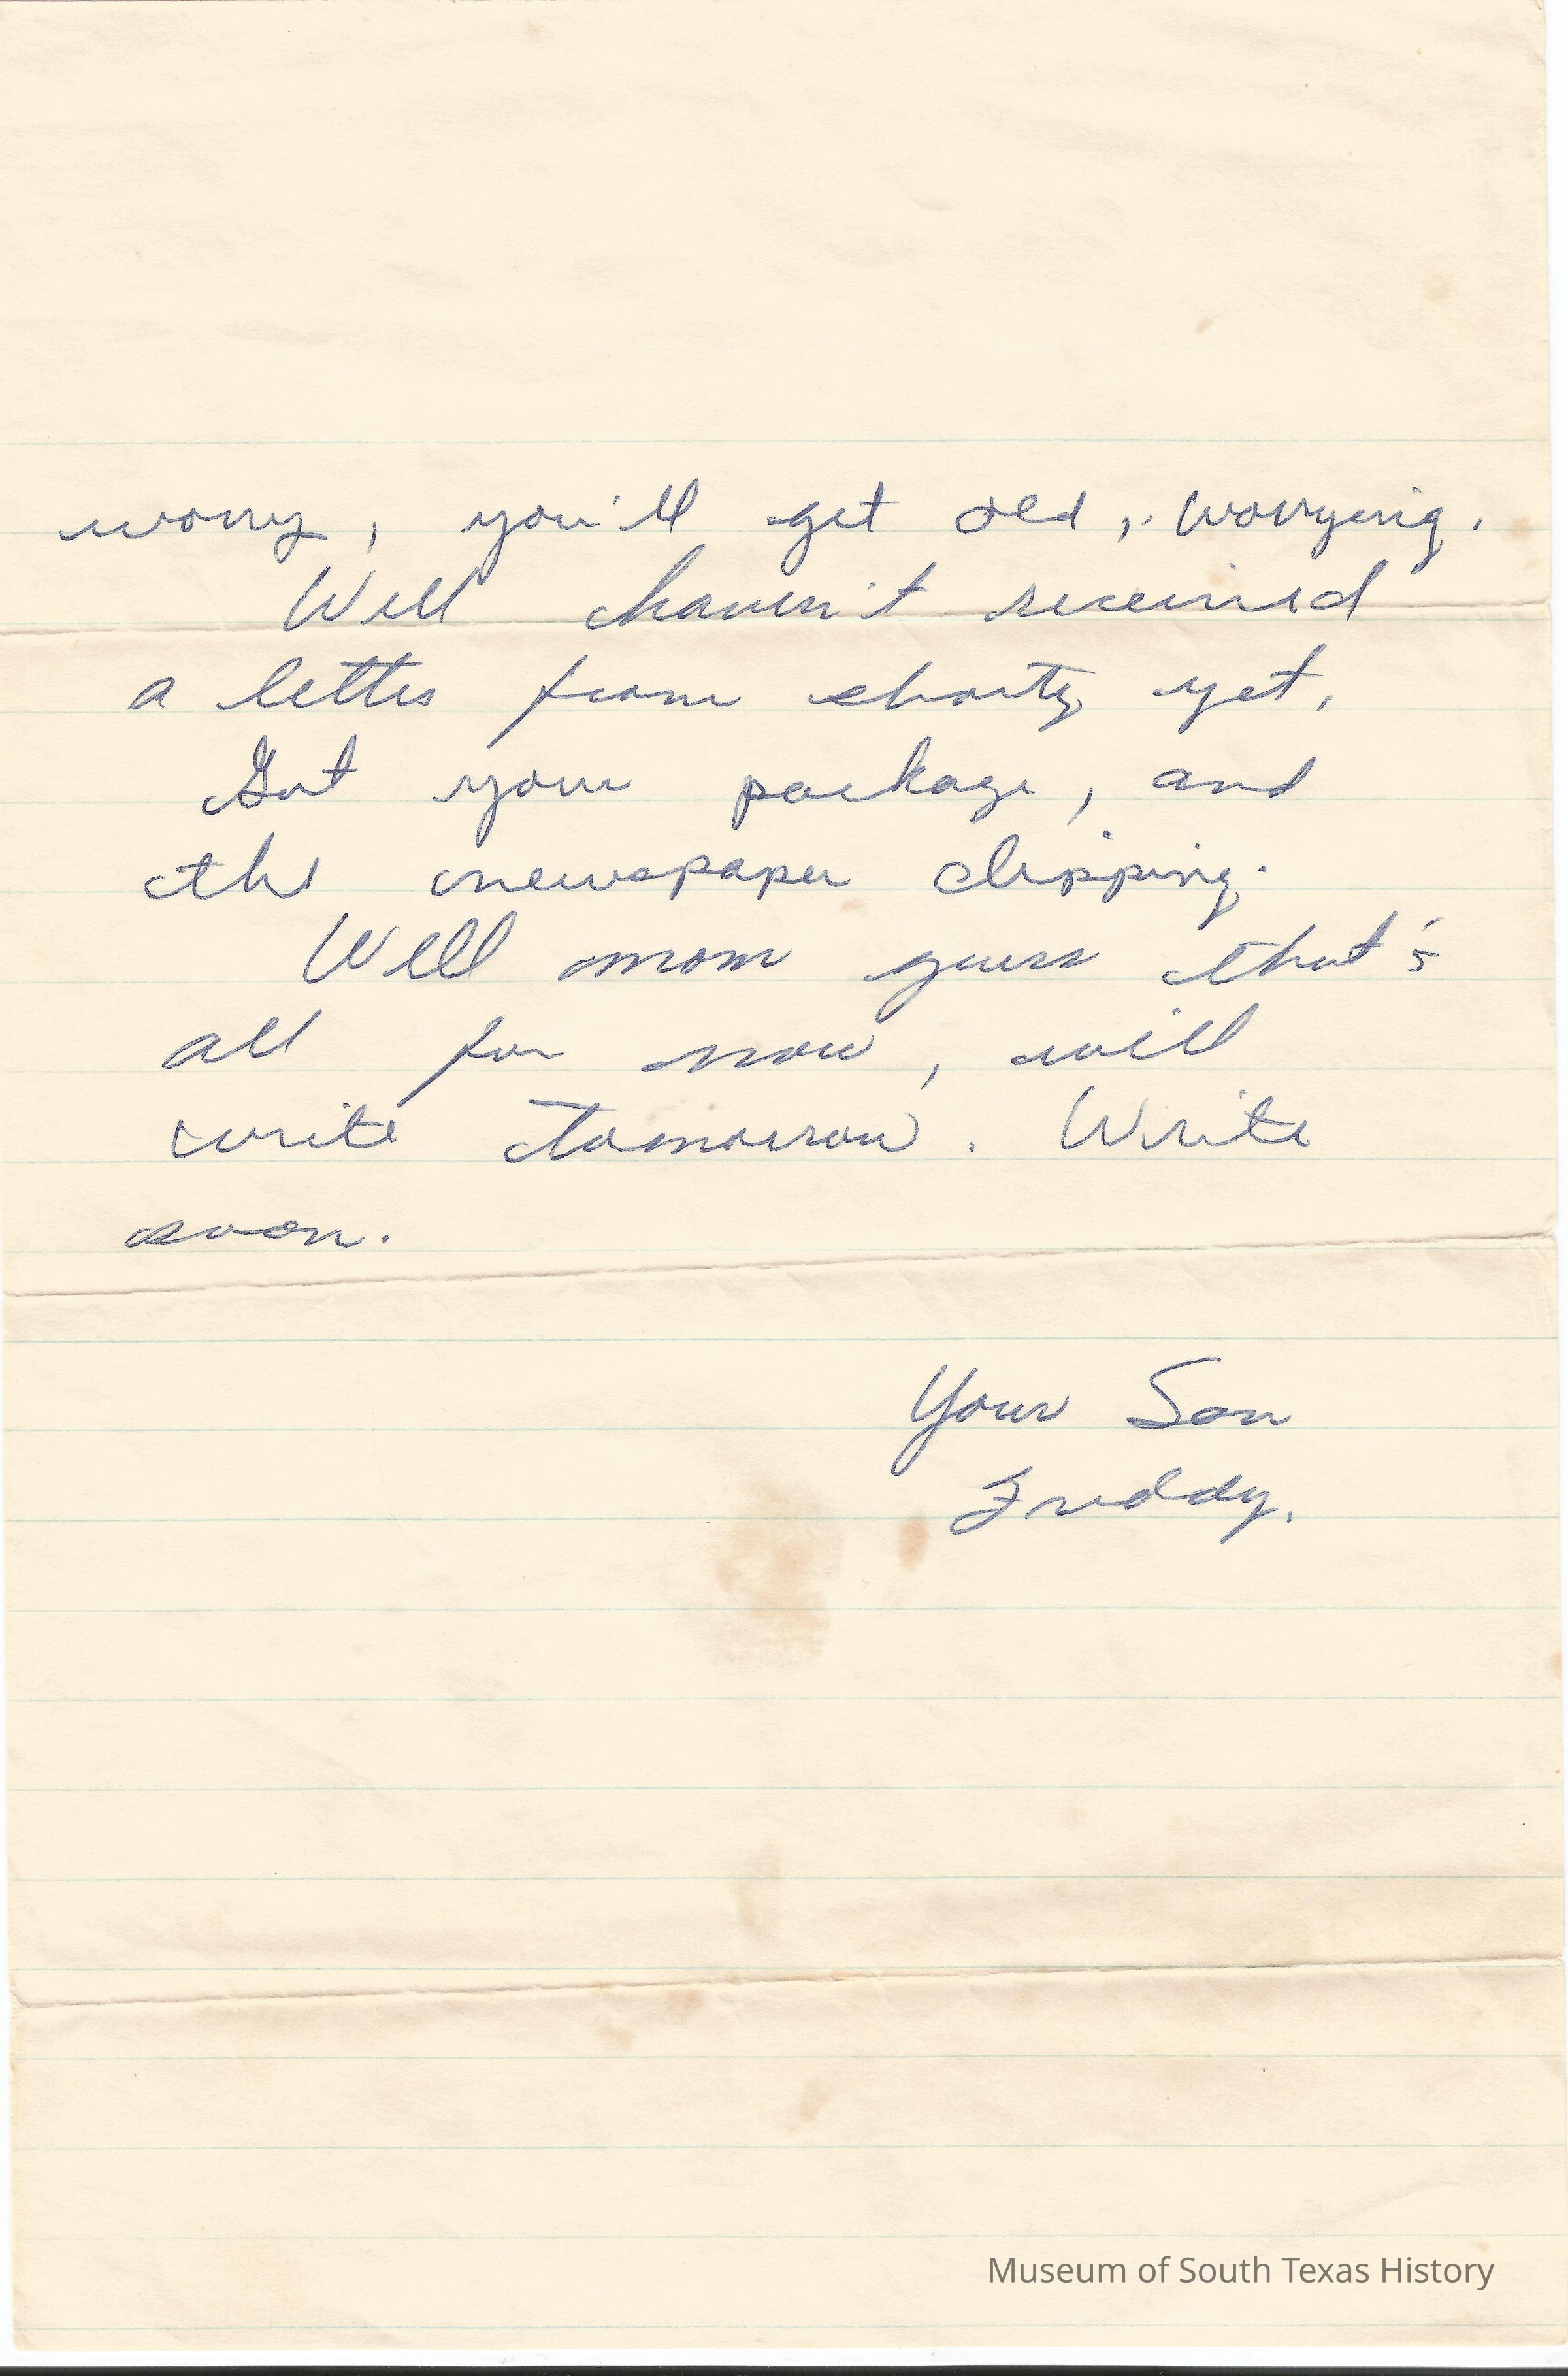 worry, you'll get old, worrying.
Well haven't received
a letter from shorty yet,
Got your package, and
the newspaper clipping.
Well mom guess that's
all for now, will
write tomorrow. Write
soon.
Your Son
Freddy.
Museum of South Texas History